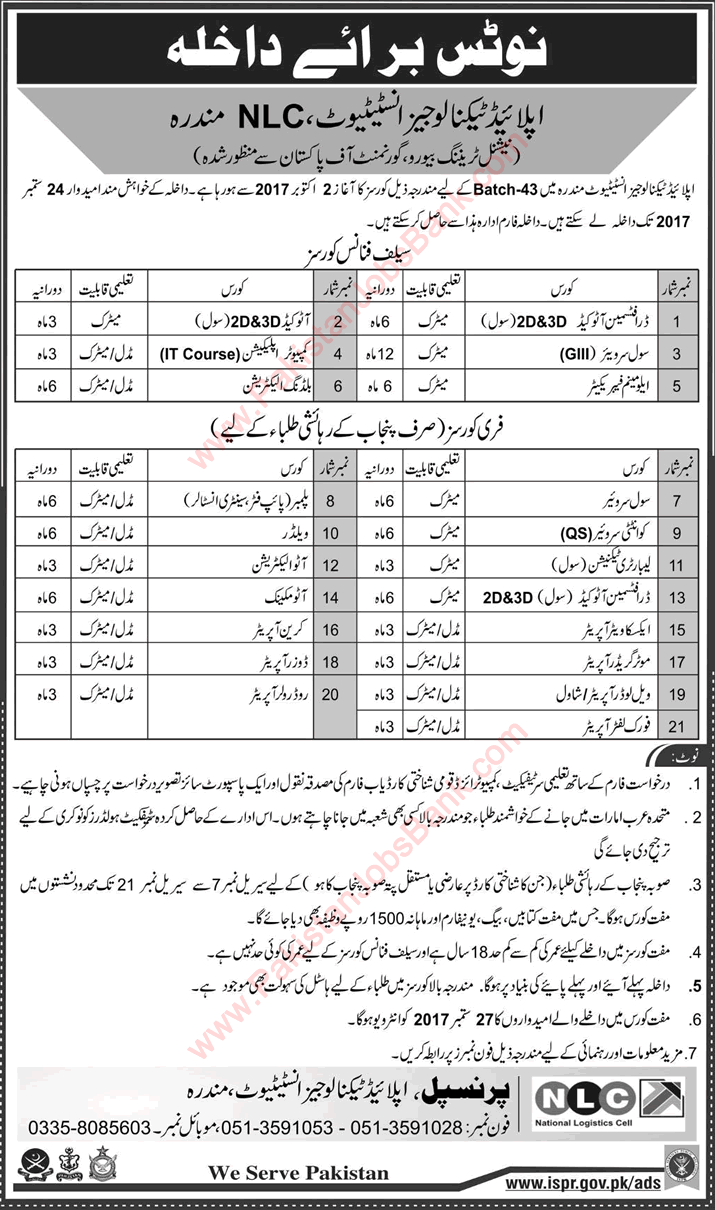 نوٹس برائے داخلہ
اپلائیڈ ٹیکنالوجیز انسٹیٹیوٹ، NLC مندرہ
(نیشنل ٹریننگ بیورو، گورنمنٹ آف پاکستان سے منظور شدہ)
اپلائیڈ ٹیکنالوجیز انسٹیٹیوٹ مندرہ میں Batch-43 کے لیے مندرجہ ذیل کورسز کا آغاز 2 اکتوبر 2017 سے ہو رہا ہے۔ داخلہ کے خواہش مند امیدوار 24 ستمبر
2017 تک داخلہ لے سکتے ہیں۔ داخلہ فارم ادارہ ہذا سے حاصل کر سکتے ہیں۔
سیلف فنانس کورسز
نمبر شمار کورس تعلیمی قابلیت دورانیہ نمبر شمار کورس تعلیمی قابلیت دورانیہ
1 ڈرافٹسمین آٹو کیڈ 2D&3D (سول) میٹرک 6 ماہ 2 آٹو کیڈ 2D&3D (سول) میٹرک 3 ماہ
3 سول سرویئر (GIII) میٹرک 12 ماہ 4 کمپیوٹر اپلیکیشن (IT Course) مڈل/میٹرک 3 ماہ
5 ایلومینم فیبریکیٹر میٹرک 6 ماہ 6 بلڈنگ الیکٹریشن مڈل/میٹرک 6 ماہ
فری کورسز (صرف پنجاب کے رہائشی طلباء کے لیے)
نمبر شمار کورس تعلیمی قابلیت دورانیہ نمبر شمار کورس تعلیمی قابلیت دورانیہ
7 سول سرویئر میٹرک 6 ماہ 8 پلمبر (پائپ فٹر، سینٹری انسٹالر) مڈل/میٹرک 6 ماہ
9 کوانٹٹی سرویئر (QS) میٹرک 6 ماہ 10 ویلڈر مڈل/میٹرک 6 ماہ
11 لیبارٹری ٹیکنیشن (سول) میٹرک 3 ماہ 12 آٹو الیکٹریشن مڈل/میٹرک 3 ماہ
13 ڈرافٹسمین آٹو کیڈ (سول) 2D&3D میٹرک 6 ماہ 14 آٹو مکینک مڈل/میٹرک 6 ماہ
15 ایکسکاویٹر آپریٹر مڈل/میٹرک 3 ماہ 16 کرین آپریٹر مڈل/میٹرک 3 ماہ
17 موٹر گریڈر آپریٹر مڈل/میٹرک 3 ماہ 18 ڈوزر آپریٹر مڈل/میٹرک 3 ماہ
19 ویل لوڈر آپریٹر/شاول مڈل/میٹرک 3 ماہ 20 روڈ رولر آپریٹر مڈل/میٹرک 3 ماہ
21 فورک لفٹر آپریٹر مڈل/میٹرک 3 ماہ
نوٹ:
1. درخواست فارم کے ساتھ تعلیمی سرٹیفکیٹ، کمپیوٹرائزڈ قومی شناختی کارڈ یا ب فارم کی مصدقہ نقول اور ایک پاسپورٹ سائز تصویر درخواست پر چسپاں ہونی چاہیے۔
2. متحدہ عرب امارات میں جانے کے خواہشمند طلباء جو مندرجہ بالا کسی بھی شعبہ میں جانا چاہتے ہوں۔ اس ادارے کے حاصل کردہ سرٹیفکیٹ ہولڈرز کو نوکری کے لیے
ترجیح دی جائے گی
3. صوبہ پنجاب کے رہائشی طلباء (جن کا شناختی کارڈ پر عارضی یا مستقل پتہ صوبہ پنجاب کا ہو) کے لیے سیریل نمبر 7 سے سیریل نمبر 21 تک محدود نشستوں میں
مفت کورس ہوگا۔ جس میں مفت کتابیں، بیگ، یونیفارم اور ماہانہ 1500 روپے وظیفہ بھی دیا جائے گا۔
4. مفت کورس میں داخلے کیلئے عمر کی کم سے کم حد 18 سال ہے اور سیلف فنانس کورسز کے لیے عمر کی کوئی حد نہیں ہے۔
5. داخلہ پہلے آیئے اور پہلے پایئے کی بنیاد پر ہوگا۔ مندرجہ بالا کورسز میں طلباء کے لیے ہاسٹل کی سہولت بھی موجود ہے۔
6. مفت کورس میں داخلے والے امیدواروں کا 27 ستمبر 2017 کو انٹرویو ہوگا۔
7. مزید معلومات اور رہنمائی کے لیے مندرجہ ذیل فون نمبرز پر رابطہ کریں۔
NLC
National Logistics Cell
پرنسپل، اپلائیڈ ٹیکنالوجیز انسٹیٹیوٹ، مندرہ
فون نمبر: 051-3591028 - 051-3591053، موبائل نمبر۔ 0335-8085603
We Serve Pakistan
www.ispr.gov.pk/ads
www.PakistanJobsBank.com
www.PakistanJobsBank.com